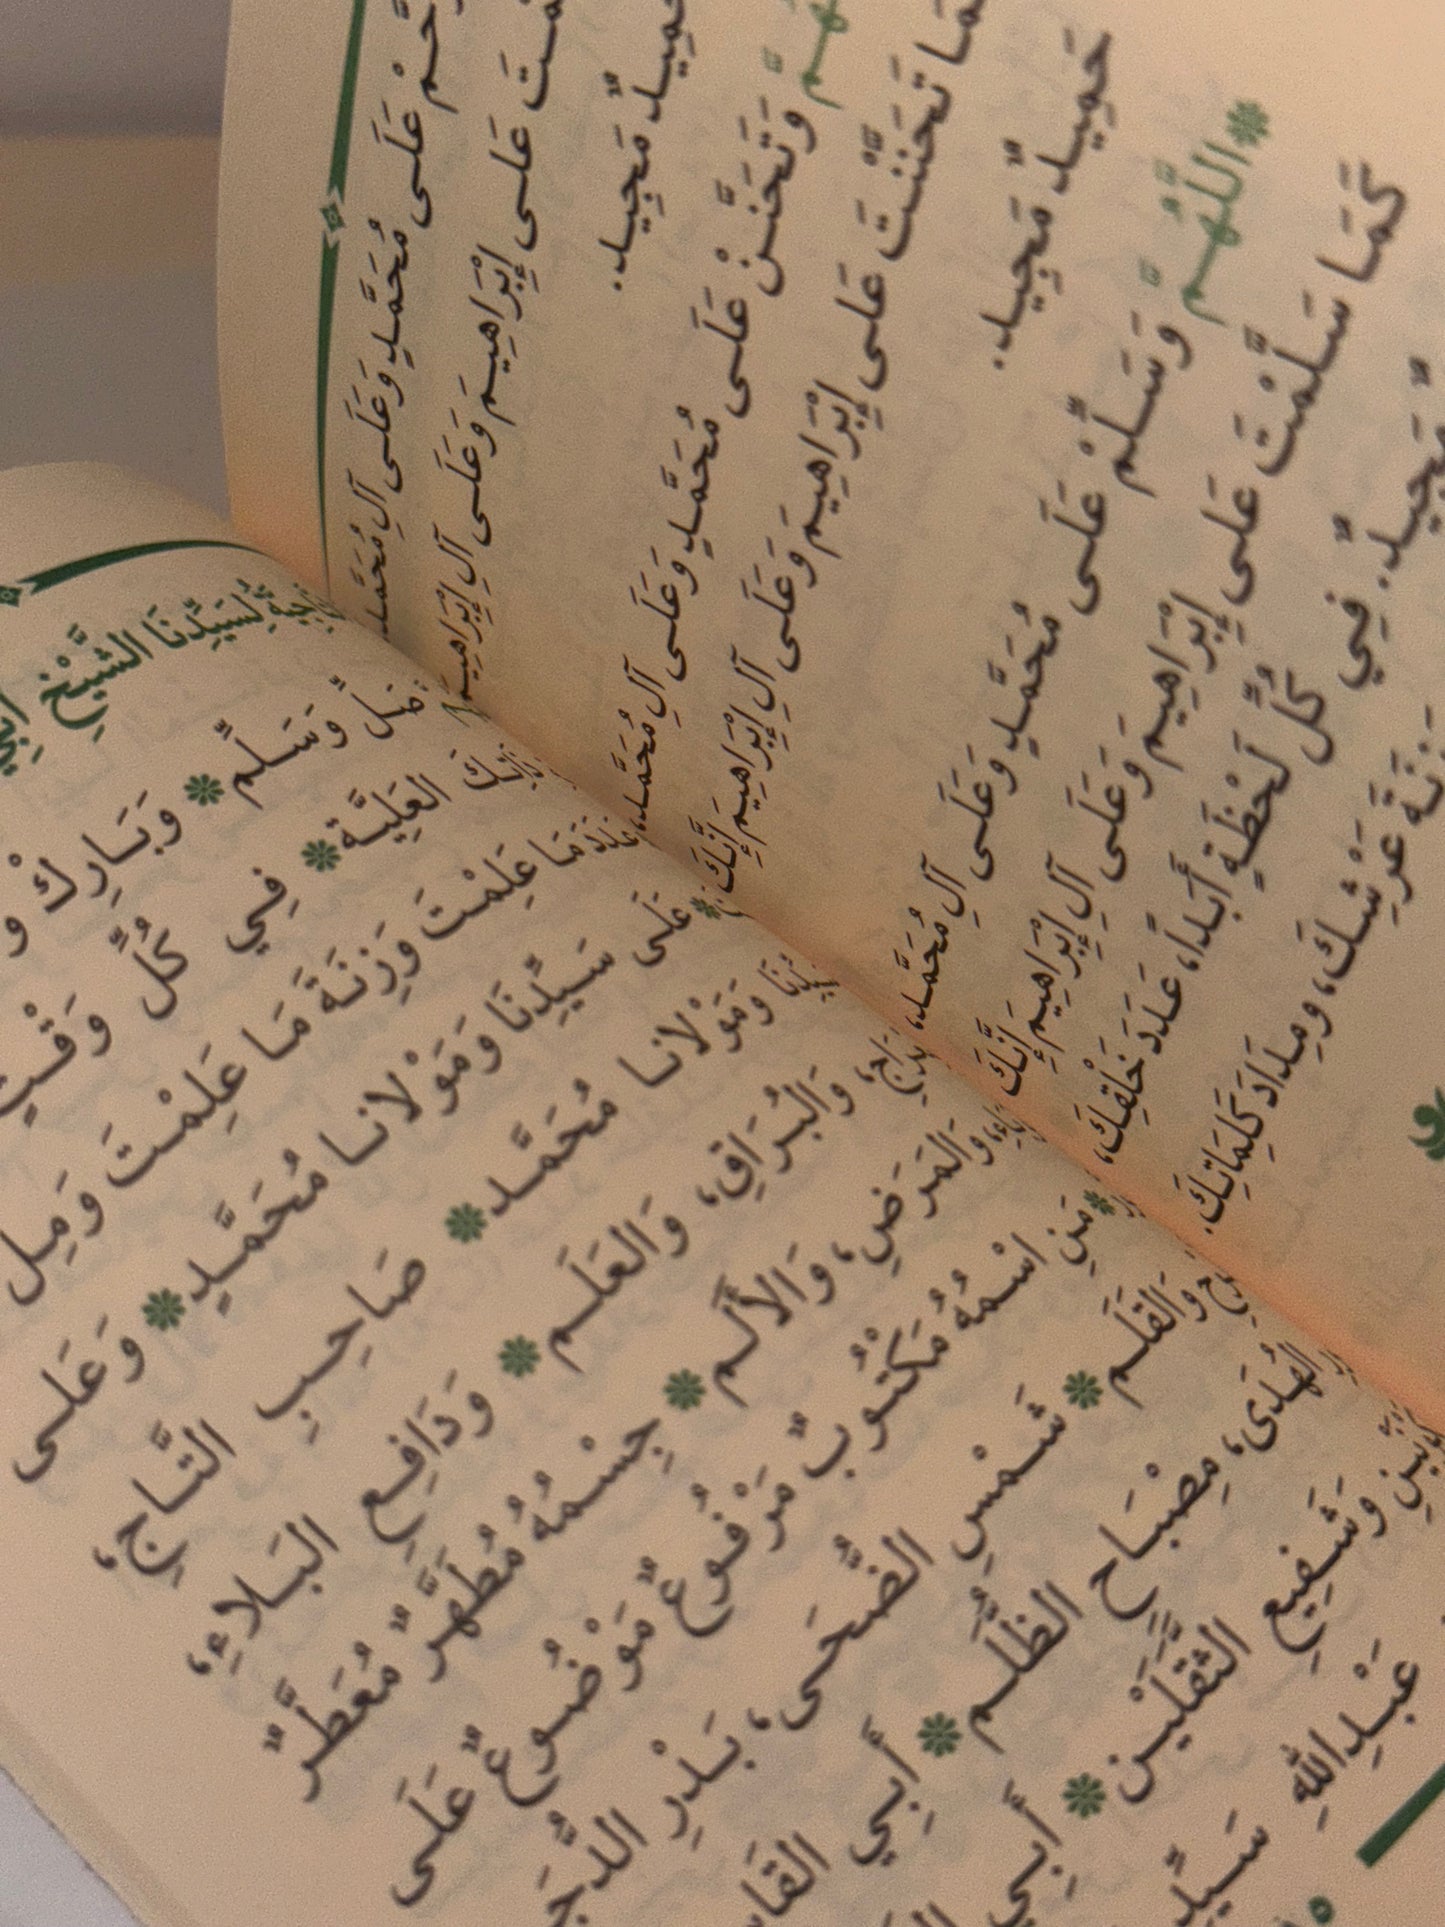 عَلَى مُحَمَّدٍ وَعَلَى آلِ مُحَمَّد
عَلَى إِبْرَاهِيمَ وَعَلَى آلِ إِبْرَاهِيمَ
حَمِيدٌ مَجِيد.
وَتَحَنَّنْ عَلَى مُحَمَّدٍ وَعَلَى آلِ مُحَمَّد،
كَمَا تَحَنَّنْتَ عَلَى إِبْرَاهِيمَ وَعَلَى آلِ إِبْرَاهِيمَ إِنَّكَ
حَمِيدٌ مَجِيد.
اللَّهُمَّ وَسَلِّمْ عَلَى مُحَمَّدٍ وَعَلَى آلِ مُحَمَّد،
كَمَا سَلَّمْتَ عَلَى إِبْرَاهِيمَ وَعَلَى آلِ إِبْرَاهِيمَ إِنَّكَ
مَجِيد. فِي كُلِّ لَحْظَةٍ أَبَداً، عَدَدَ خَلْقِكَ،
عَرْشِكَ، وَمِدَادَ كَلِمَاتِكَ.
لِسَيِّدِنَا الشَّيْخِ أَبِي
صَلِّ وَسَلِّمْ وَبَارِكْ
العَلِيَّة فِي كُلِّ وَقْتٍ
عَدَدَ مَا عَلِمْتَ وَزِنَةَ مَا عَلِمْتَ وَمِلْ
عَلَى سَيِّدِنَا وَمَوْلانا مُحَمَّدٍ وَعَلَى
وَمَوْلانا مُحَمَّد صَاحِبِ التَّاجِ،
وَالبُرَاقِ، وَالعَلَم وَدَافِعِ البَلاءِ،
وَالمَرَضِ، وَالأَلَم جِسْمُهُ مُطَهَّرٌ مُعَطَّرٌ
مَنِ اسْمُهُ مَكْتُوبٌ مَرْفُوعٌ مَوْضُوعٌ عَلَى
وَالقَلَم شَمْسِ الضُّحَى، بَدْرِ الدُّجَى
الهُدَى، مِصْبَاحِ الظُّلَم أَبِي
وَشَفِيعِ الثَّقَلَيْن أَبِي
عَبْدِ اللهِ سَيِّدِ